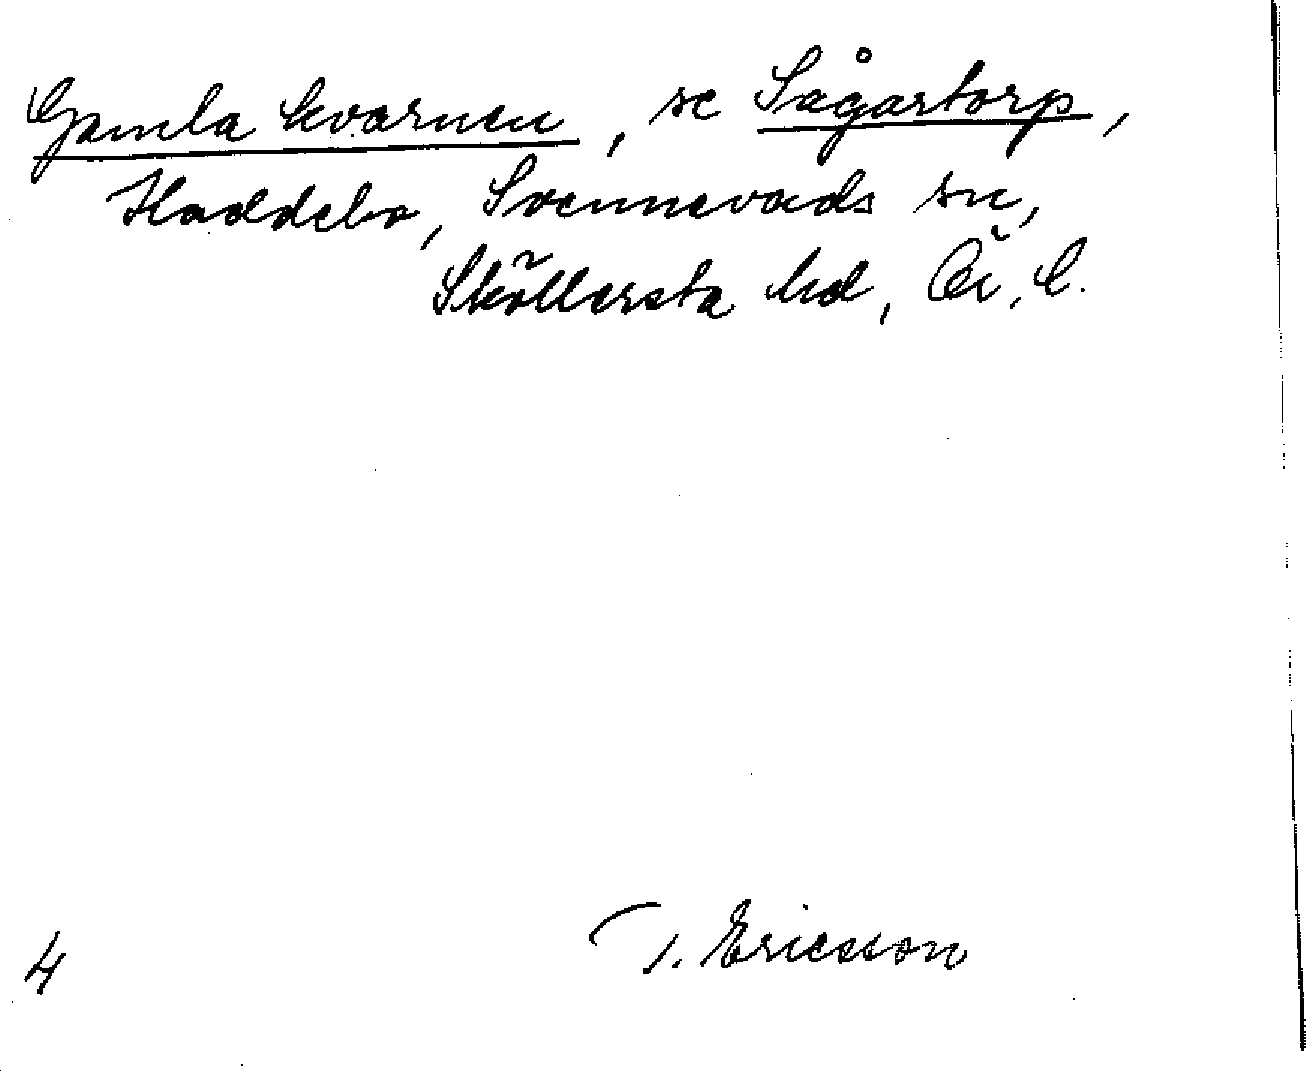 Gamla kvarnen, se Sågartorp,
Haddebo, Svennevads sn,
Sköllersta hd, Ör. l.
4
T. Ericsson